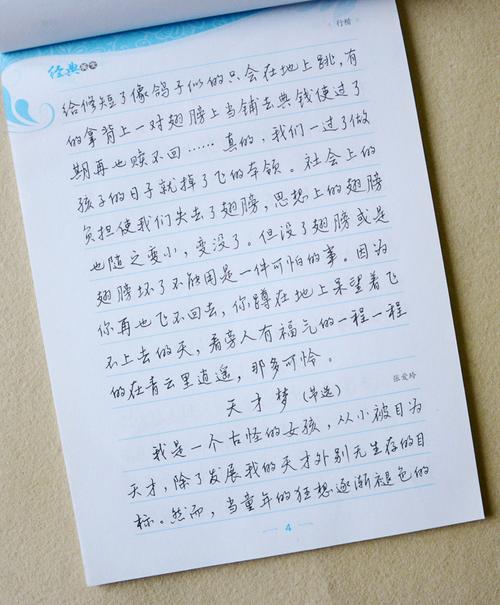 行楷
经典美文
给修短了像鸽子似的只会在地上跳,有
的拿背上一对翅膀上当铺去典钱使过了
期再也赎不回……真的,我们一过了做
孩子的日子就掉了飞的本领。社会上的
负担使我们失去了翅膀,思想上的翅膀
也随之变小,变没了。但没了翅膀或是
翅膀坏了不能用是一件可怕的事。因为
你再也飞不回去,你蹲在地上呆望着飞
不上去的天,看旁人有福气的一程一程
的在青云里逍遥,那多可怜。
天才梦(节选)
张爱玲
我是一个古怪的女孩,从小被目为
天才,除了发展我的天才外别无生存的目
标。然而,当童年的狂想逐渐褪色的
4